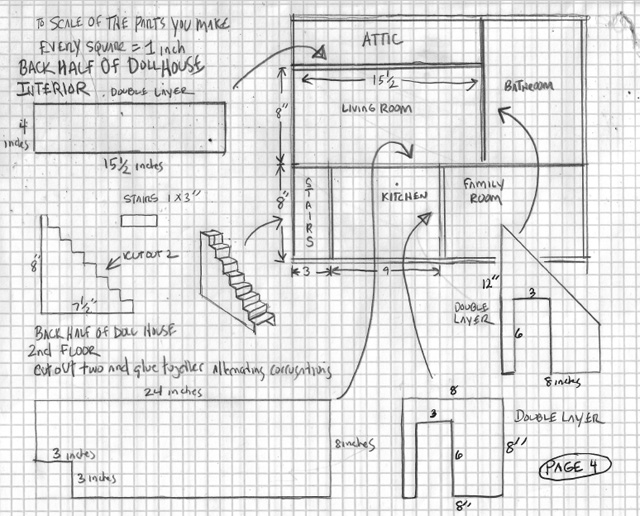 TO SCALE OF THE PARTS YOU MAKE
EVERY SQUARE = 1 inch
BACK HALF OF DOLLHOUSE
INTERIOR . DOUBLE LAYER
4
inches
15 1/2 inches
STAIRS 1X3"
8"
CUT OUT 2
7 1/2"
BACK HALF OF DOLL HOUSE
2nd FLOOR
cut out two and glue together alternating corrugations
24 inches
8 inches
3 inches
3 inches
ATTIC
15 1/2
BATHROOM
LIVING ROOM
8"
8"
STAIRS
KITCHEN
FAMILY
ROOM
3
9
12"
3
DOUBLE
LAYER
6
8 inches
8
3
6
8"
8"
DOUBLE LAYER
PAGE 4